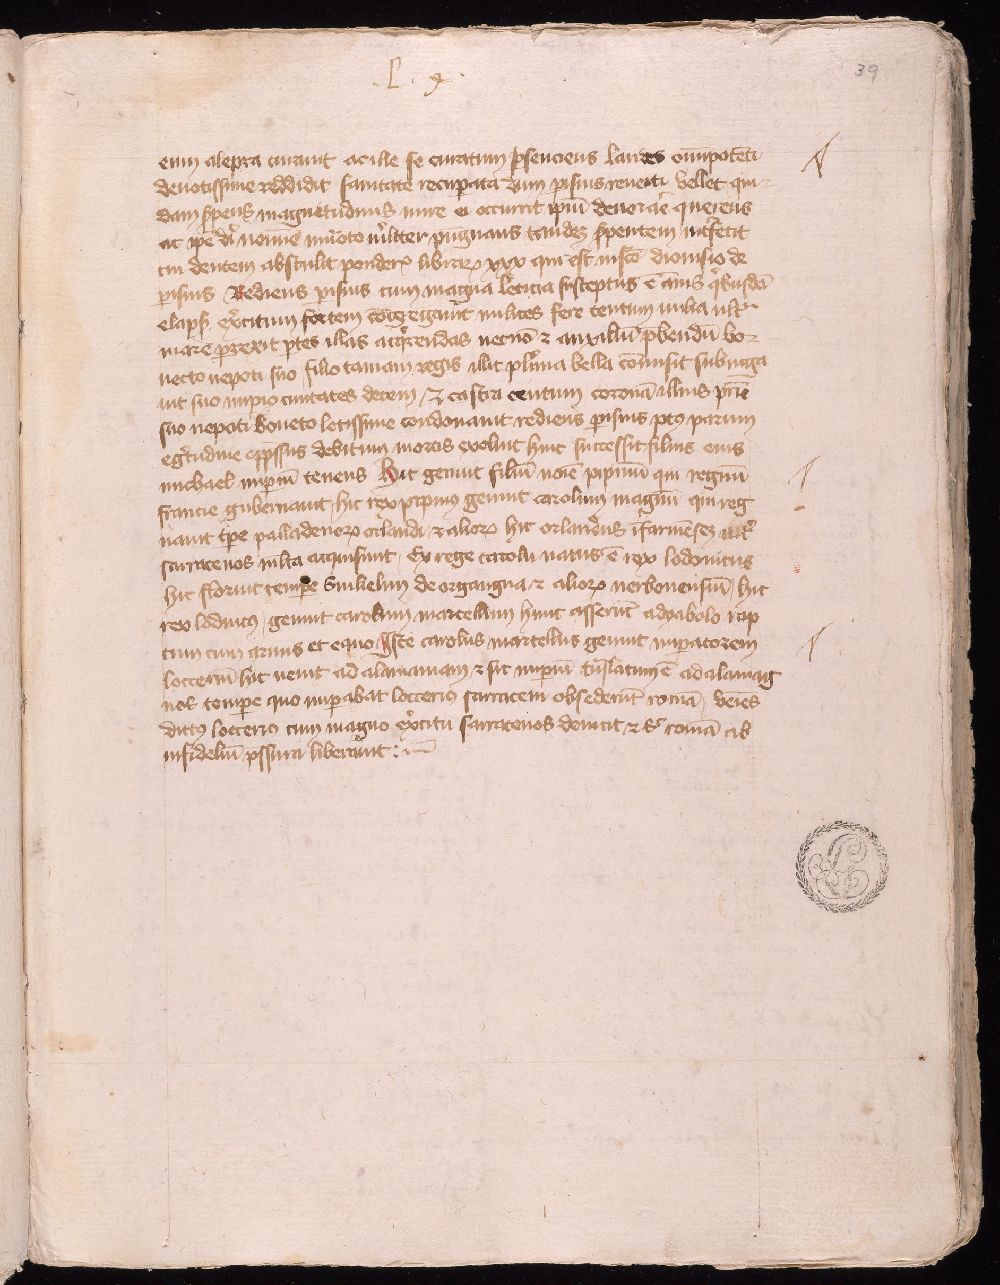 39
eum alepra curavit ac ille se curatum presenciens laudes omnipotenti
devotissime reddidit sanitate recuperata dum parisius reverti vellet qui
dam serpens magnitudinis mire ei occurrit ipsum devorare querens
ac ipse nomine invocato viriliter pugnans tandem serpentem interfecit
cui dentem abstulit ponderis librarum xxx qui est in sancto dionisio de
parisius Rediens parisius cum magna leticia susceptus est annis quibusdam
elapsis exercitum fortem congregavit milites fere centum milia ultra
mare perrexit partes illas acquirendas necnon et auxilium prebendum bo
neto nepoti suo filio tamen regis illic plurima bella commisit subiuga
vit suo imperio civitates decem et castra centum coronam illius patrie
suo nepoti boneto letissime condonavit rediens parisius post parum
egritudine oppressus debitum mortis exolvit huic successit filius eius
michael imperium tenens Hic genuit filium nomine pipinum qui regnum
francie gubernavit hic rex pipinus genuit carolum magnum qui reg
navit tempore palladinorum orlandi et aliorum hic orlandus
sarracenos multa acquisivit Ex rege carolu natus est rex lodovicus
hic floruit tempore Guilielmi de organgna et aliorum nerbonensium hic
rex lodovicus genuit carolum martellum hunc asserunt a dyabolo rap
tum cum armis et equo Iste carolus martellus genuit imperatorem
loccerium hic venit ad alamaniam et sic imperium translatum est ad alamag
nos tempore quo imperabat loccerius sarraceni obsederunt romam veniens
dictus loccerius cum magno exercitu sarracenos devicit et sic romam ab
infidelium pressura liberavit